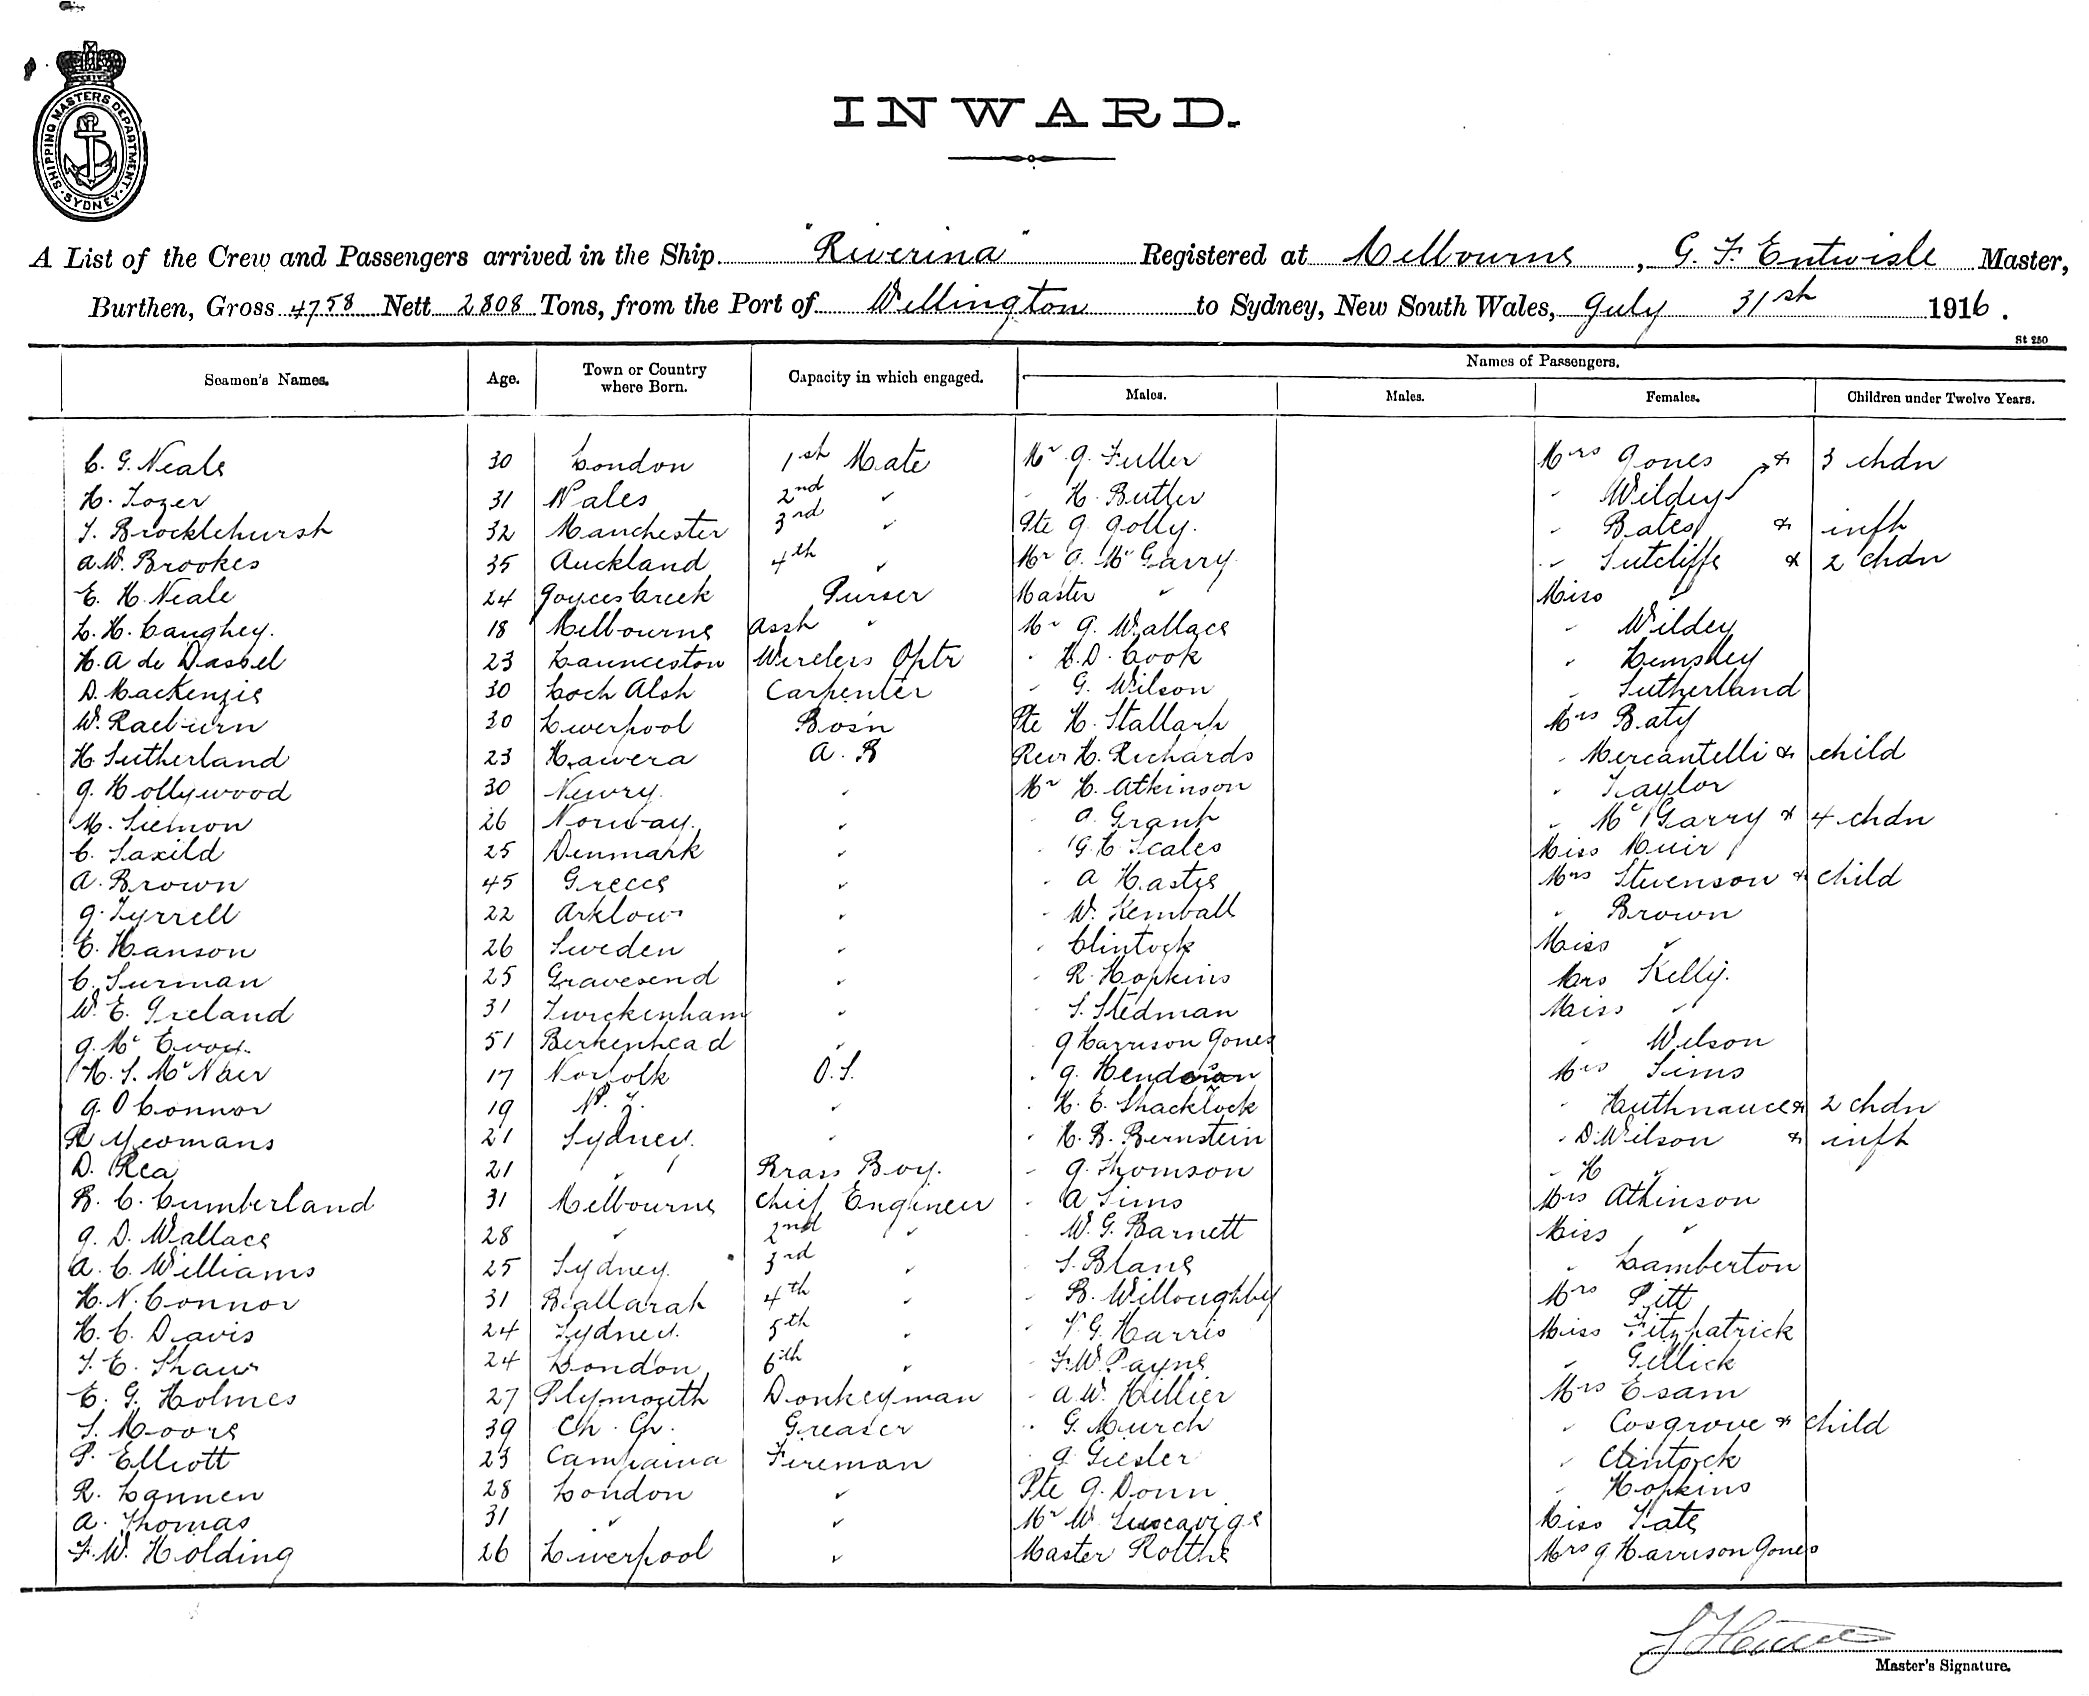 SHIPPING MASTERS DEPARTMENT SYDNEY
INWARD.
A List of the Crew and Passengers arrived in the Ship "Riverina" Registered at Melbourne, G. F. Entwisle Master,
Burthen, Gross 4758 Nett 2808 Tons, from the Port of Wellington to Sydney, New South Wales, July 31st 1916.
St 250
Names of Passengers.
Seamen's Names. Age. Town or Country where Born. Capacity in which engaged. Males. Males. Females. Children under Twelve Years.
C. G. Neale 30 London 1st Mate Mr J. Fuller Mrs Jones & 3 chdn
H. Tozer 31 Wales 2nd " " H. Butler " Wildey
T. Brocklehurst 32 Manchester 3rd " Pte J. Jolly. " Bates & inft
A. W. Brookes 35 Auckland 4th " Mr O. McGarry " Sutcliffe & 2 chdn
E. H. Neale 24 Joyces Creek Purser Master " Miss "
L. H. Caughey. 18 Melbourne Asst " Mr J. Wallace " Wildey
H. A de Dassel 23 Launceston Wireless Optr " H. D. Cook " Hemsley
D. Mackenzie 30 Loch Alsh Carpenter " G. Wilson " Sutherland
W. Raeburn 30 Liverpool Bosn Pte H. Stallart Mrs Baty
H Sutherland 23 Hawera A. B Rev H. Richards " Mercantelli & child
J. Hollywood 30 Newry. " Mr H. Atkinson " Taylor
M. Siemon 26 Norway. " A. Grant " McGarry & 4 chdn
C. Saxild 25 Denmark " " G. C Scales Miss Muir
A. Brown 45 Greece " " A Hastie Mrs Stevenson & child
J. Tyrrell 22 Arklow " " W. Kemball " Brown
E. Hanson 26 Sweden " " Clintock Miss "
C. Surman 25 Gravesend " " R. Hopkins Mrs Kelly.
W. E. Ireland 31 Twickenham " " S. Stedman Miss "
J. McEvoy. 51 Berkenhead " " J Harrison Jones " Wilson
H. S. McNair 17 Norfolk O. S. " J. Henderson Mrs Sims
J. O Connor 19 N. Z. " " H. E. Shacklock " Huthnance & 2 chdn
R Yeomans 21 Sydney. " " H. B. Bernstein " D. Wilson & inft
D. Rea 21 " Brass Boy. " J. Thomson " H "
B. C. Cumberland 31 Melbourne Chief Engineer " A Sims Mrs Atkinson
J. D. Wallace 28 " 2nd " " W. G. Barnett Miss "
A. C. Williams 25 Sydney. 3rd " " S. Blane " Lamberton
H. N. Connor 31 Ballarat 4th " " B. Willoughby Mrs Pitt
H. C. Davis 24 Sydney. 5th " " V. G. Harris Miss Fitzpatrick
T. E. Shaw 24 London 6th " " F. W. Payne " Gellick
E. G. Holmes 27 Plymouth Donkeyman " A. W. Hillier Mrs Esam
S. Moore 39 Ch. Ch. Greaser " G. Murch " Cosgrove & child
P. Elliott 23 Campaina Fireman " J. Giesler " Clintock
R. Lannen 28 London " Pte J. Donn " Hopkins
A. Thomas 31 " " Mr W. Miss Tate
F. W. Holding 26 Liverpool " Master Rolthe Mrs J Harrison Jones
Master's Signature.